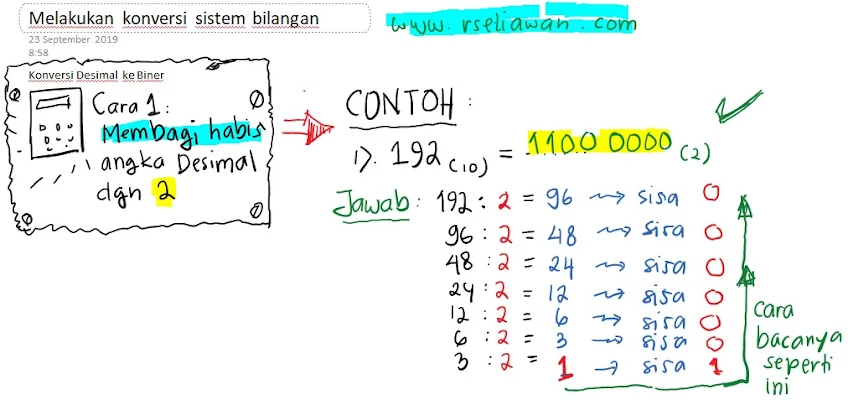 Melakukan konversi sistem bilangan
23 September 2019
8:58
www.rsetiawan.com
Konversi Desimal ke Biner
Cara 1:
Membagi habis
angka Desimal
dgn 2
CONTOH :
1). 192 (10) = 1100 0000 (2)
Jawab: 192 : 2 = 96 → sisa 0
96 : 2 = 48 → sisa 0
48 : 2 = 24 → sisa 0
24 : 2 = 12 → sisa 0
12 : 2 = 6 → sisa 0
6 : 2 = 3 → sisa 0
3 : 2 = 1 → sisa 1
cara
bacanya
seperti
ini